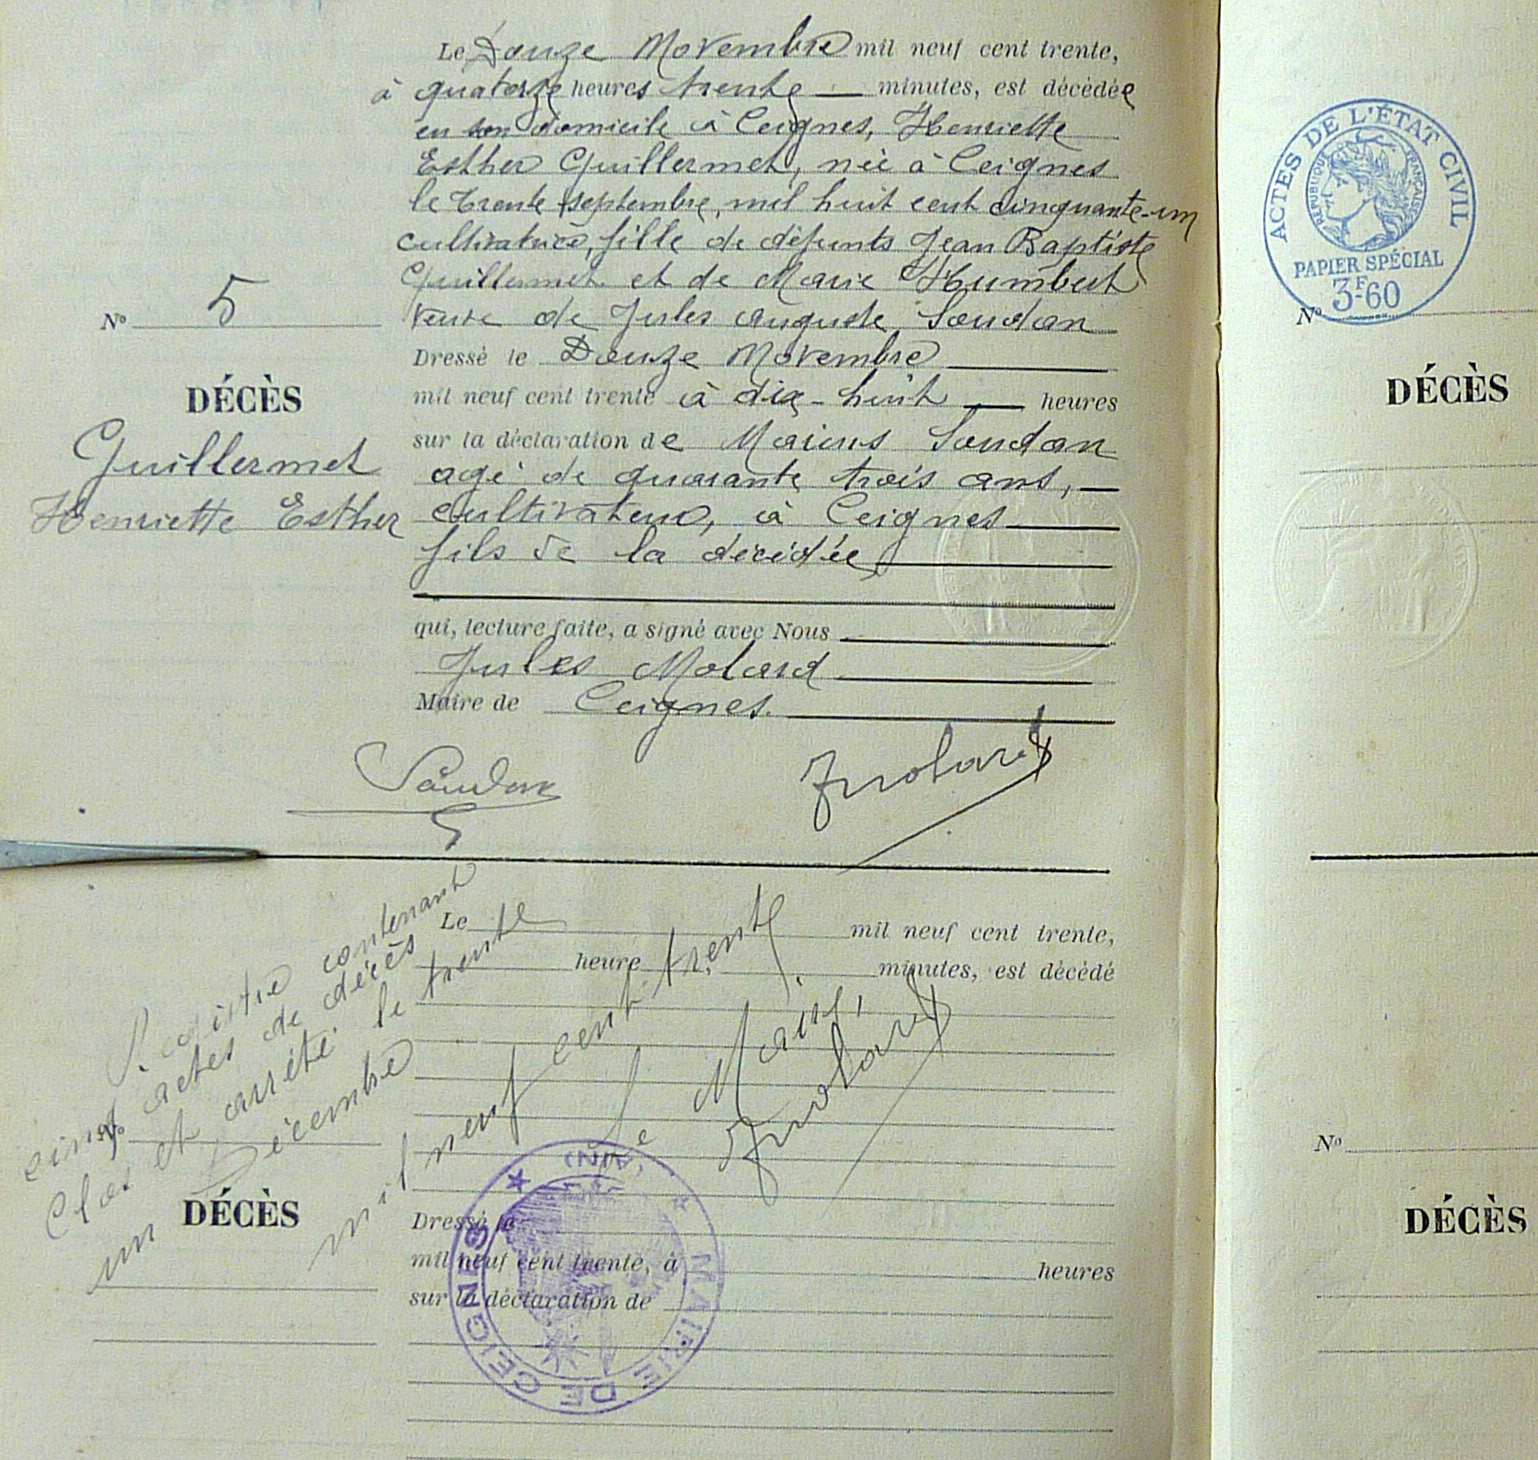 Le Douze Novembre mil neuf cent trente,
à quatorze heures trente minutes, est décédée
en son domicile à Ceignes, Henriette
Esther Guillermet, née à Ceignes
le trente septembre, mil huit cent cinquante-un
cultivatrice, fille de défunts Jean Baptiste
Guillermet et de Marie Humbert
veuve de Jules Auguste Soudan
Dressé le Douze Novembre
mil neuf cent trente à dix-huit heures
sur la déclaration de Marius Soudan
agé de quarante trois ans,
cultivateur, à Ceignes
fils de la décédée
qui, lecture faite, a signé avec Nous
Jules Molard
Maire de Ceignes.
Soudan
JMolard
No 5
DÉCÈS
Guillermet
Henriette Esther
Registre contenant
cinq actes de décès
Clos et arrêté le trente
un Décembre
mil neuf cent trente.
Le Maire,
JMolard
Le mil neuf cent trente,
heure minutes, est décédé
No
DÉCÈS
Dressé le
mil neuf cent trente, à heures
sur la déclaration de
MAIRIE DE CEIGNES
(AIN)
ACTES DE L'ÉTAT CIVIL
RÉPUBLIQUE FRANÇAISE
PAPIER SPÉCIAL
3F60
No
DÉCÈS
No
DÉCÈS